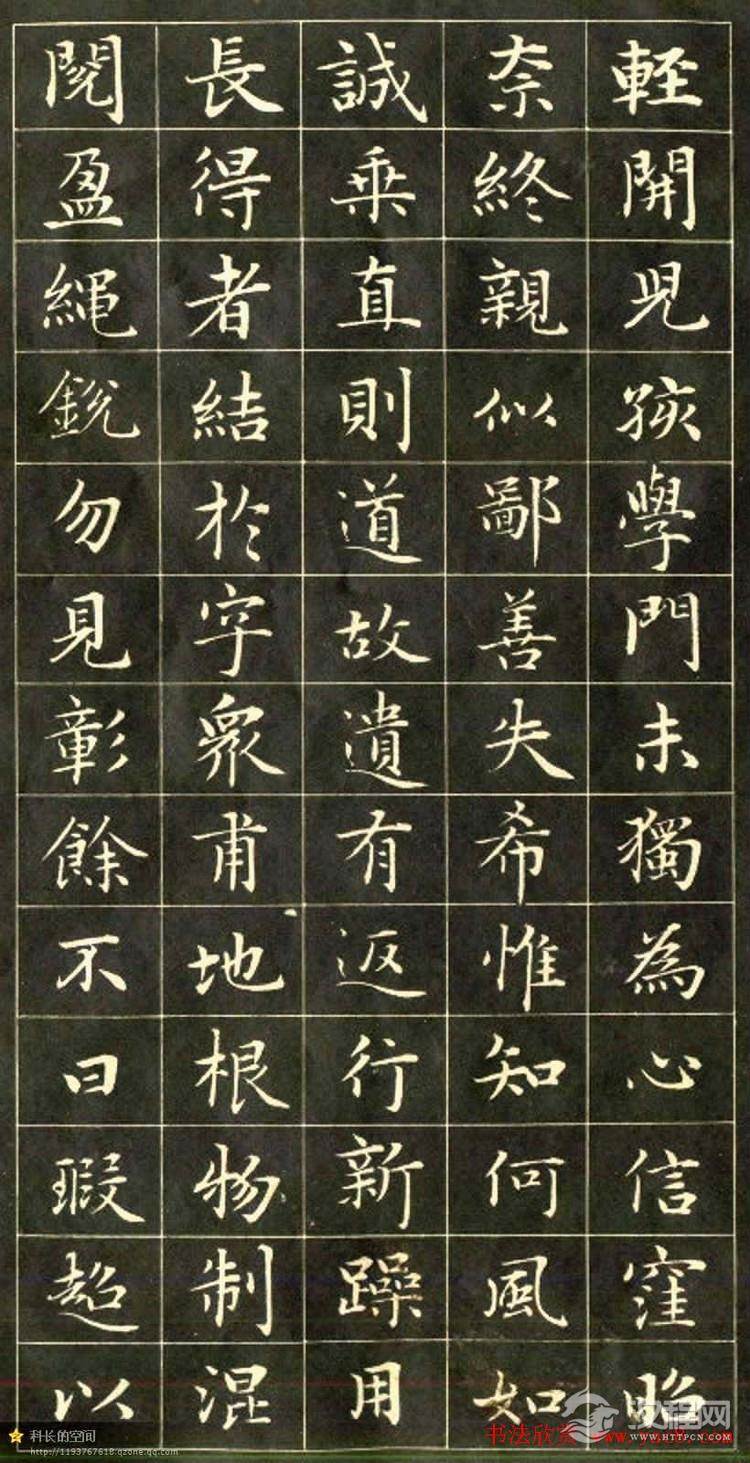 輕開兒孩學門未獨為心信窪昭
奈終親似鄙善失希惟知何風如
誠乗直則道故遺有返行新躁用
長得者結於字衆甫地根物制混
閱盈繩銳勿見彰餘不曰瑕超以
科长的空间
http://1193767618.qzone.qq.com
书法欣
汉程网
WWW.HTTPCN.COM